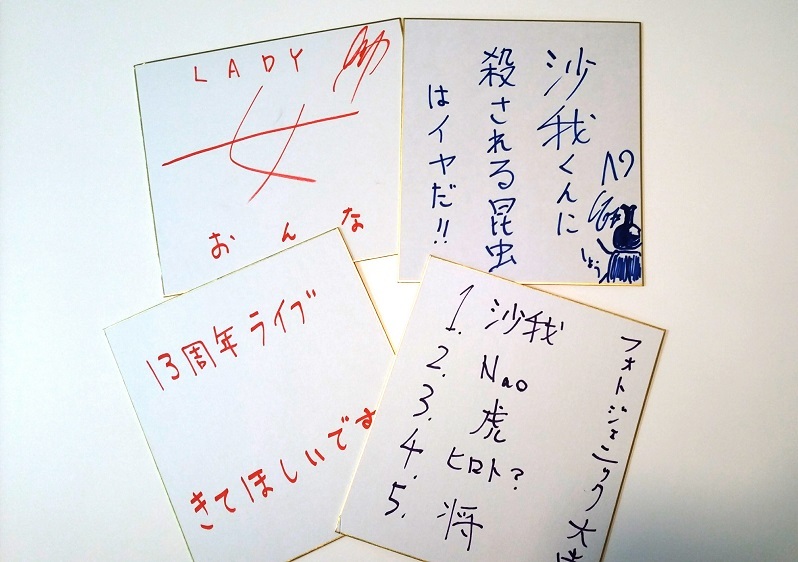 LADY
女
おんな
沙我くんに
殺される昆虫
はイヤだ!!
しょう
13周年ライブ
きてほしいです
フォトジェニック大
1. 沙我
2. Nao
3. 虎
4. ヒロト?
5. 将